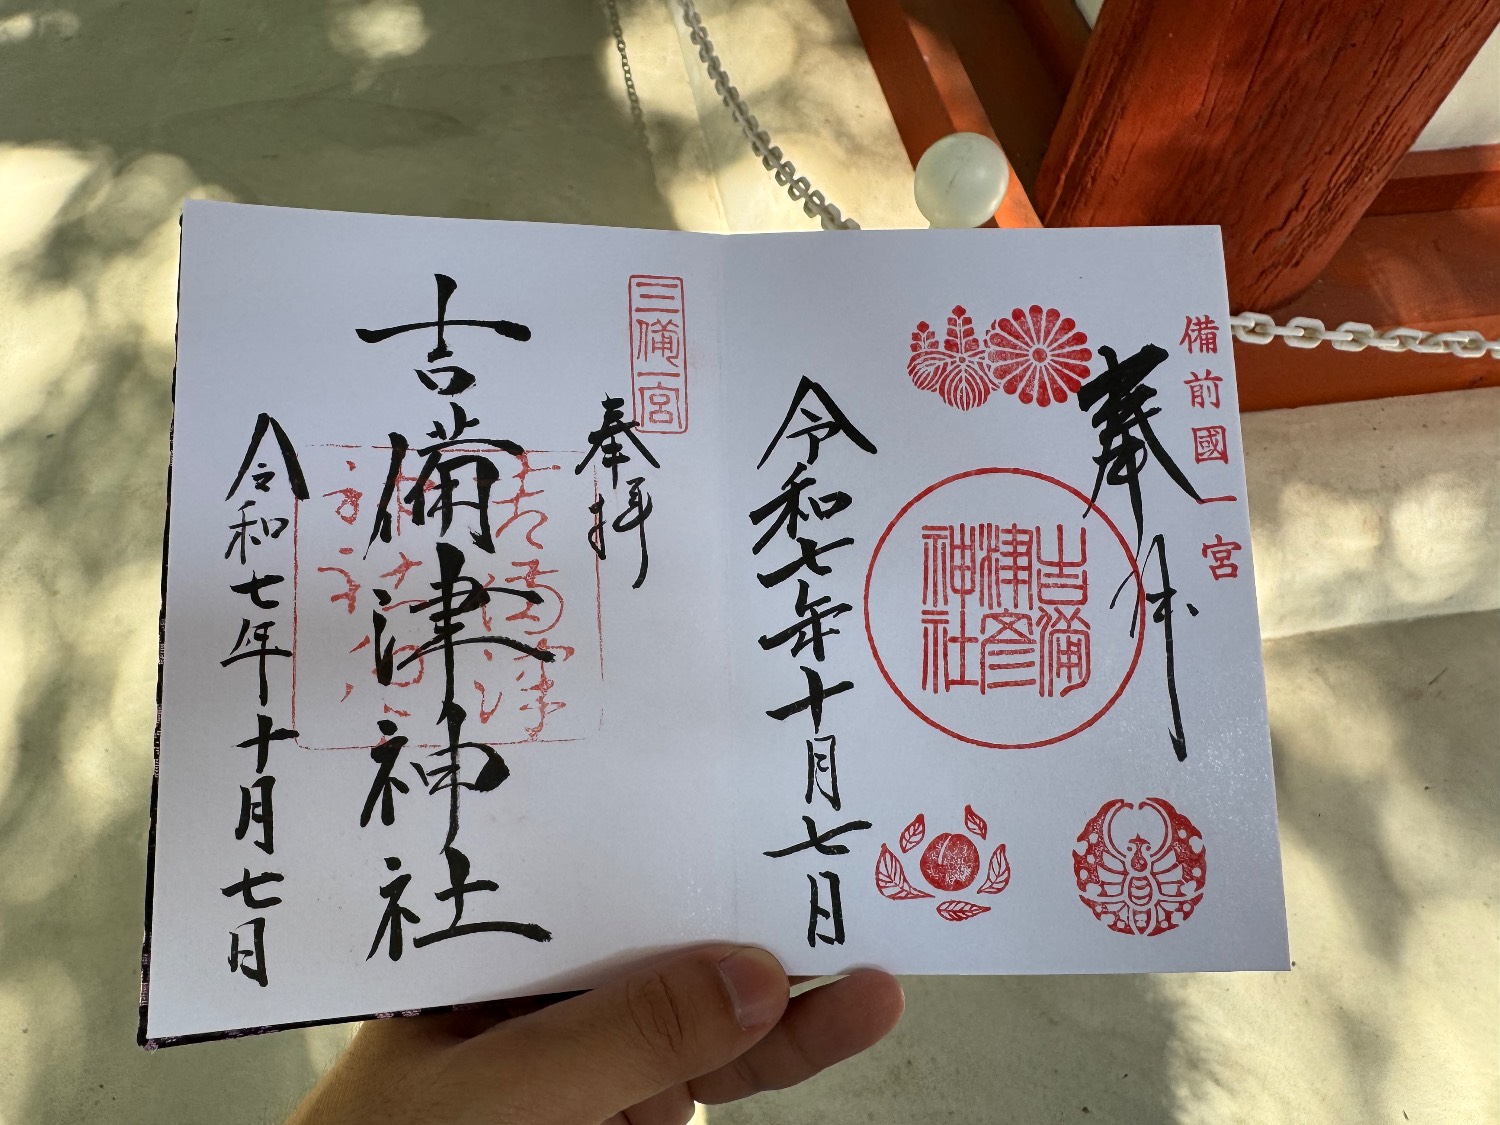 備前國一宮
奉拝
吉備
津彦
神社
令和七年十月七日
三備一宮
奉拝
吉備津神社
令和七年十月七日